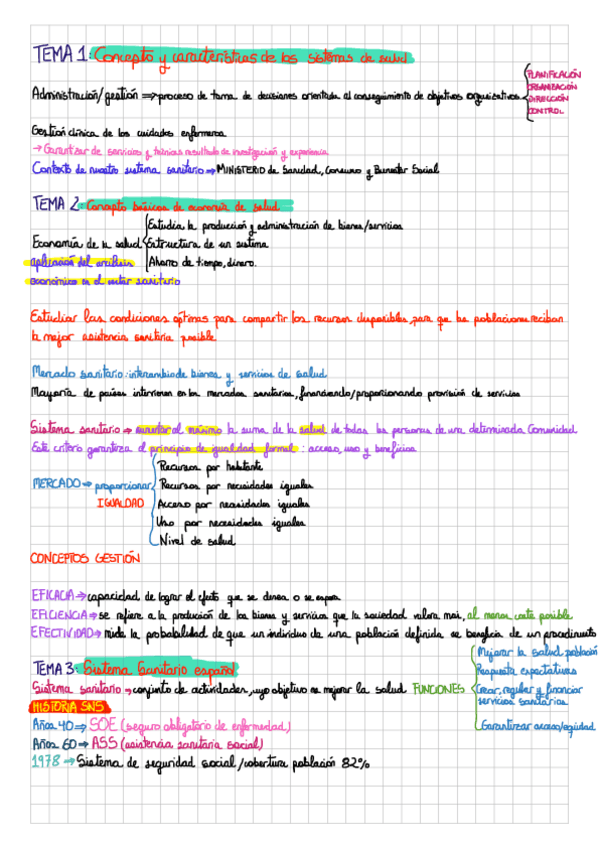 TEMA 1: Concepto y características de los sistemas de salud
Administración/gestión ⇒ proceso de toma de decisiones orientada al conseguimiento de objetivos organizativos
PLANIFICACIÓN
ORGANIZACIÓN
DIRECCIÓN
CONTROL
Gestión clínica de los cuidados enfermeros
→ Garantizar de servicios y técnicas resultado de investigación y experiencia
Contexto de nuestro sistema sanitario → MINISTERIO de Sanidad, Consumo y Bienestar Social
TEMA 2: Concepto básicos de economía de salud
Economía de la salud
aplicación del análisis
económico en el sector sanitario
Estudia la produccion y administración de bienes/servicios
Estructura de un sistema
Ahorro de tiempo, dinero.
Estudiar las condiciones óptimas para compartir los recursos disponibles, para que las poblaciones reciban
la mejor asistencia sanitaria posible
Mercado sanitario: intercambio de bienes y servicios de salud
Mayoría de países intervienen en los mercados sanitarios, financiando/proporcionando provisión de servicios
Sistema sanitario → aumentar al máximo la suma de la salud de todas las personas de una determinada Comunidad
Este criterio garantiza el principio de igualdad formal: acceso, uso y beneficios
MERCADO → proporcionar
IGUALDAD
Recursos por habitante
Recursos por necesidades iguales
Acceso por necesidades iguales
Uso por necesidades iguales
Nivel de salud
CONCEPTOS GESTIÓN
EFICACIA → capacidad de lograr el efecto que se desea o se espera
EFICIENCIA → se refiere a la producción de los bienes y servicios que la sociedad valora más, al menor coste posible
EFECTIVIDAD → mide la probabilidad de que un individuo de una población definida se beneficia de un procedimiento
TEMA 3: Sistema Sanitario español
Sistema sanitario → conjunto de actividades, cuyo objetivo es mejorar la salud FUNCIONES
Mejorar la salud población
Respuesta expectativas
Crear, regular y financiar
servicios sanitarios
Garantizar acceso/equidad
HISTORIA SNS
Años 40 ⇒ SOE (seguro obligatorio de enfermedad)
Años 60 → ASS (asistencia sanitaria social)
1978 → Sistema de seguridad social/cobertura población 82%